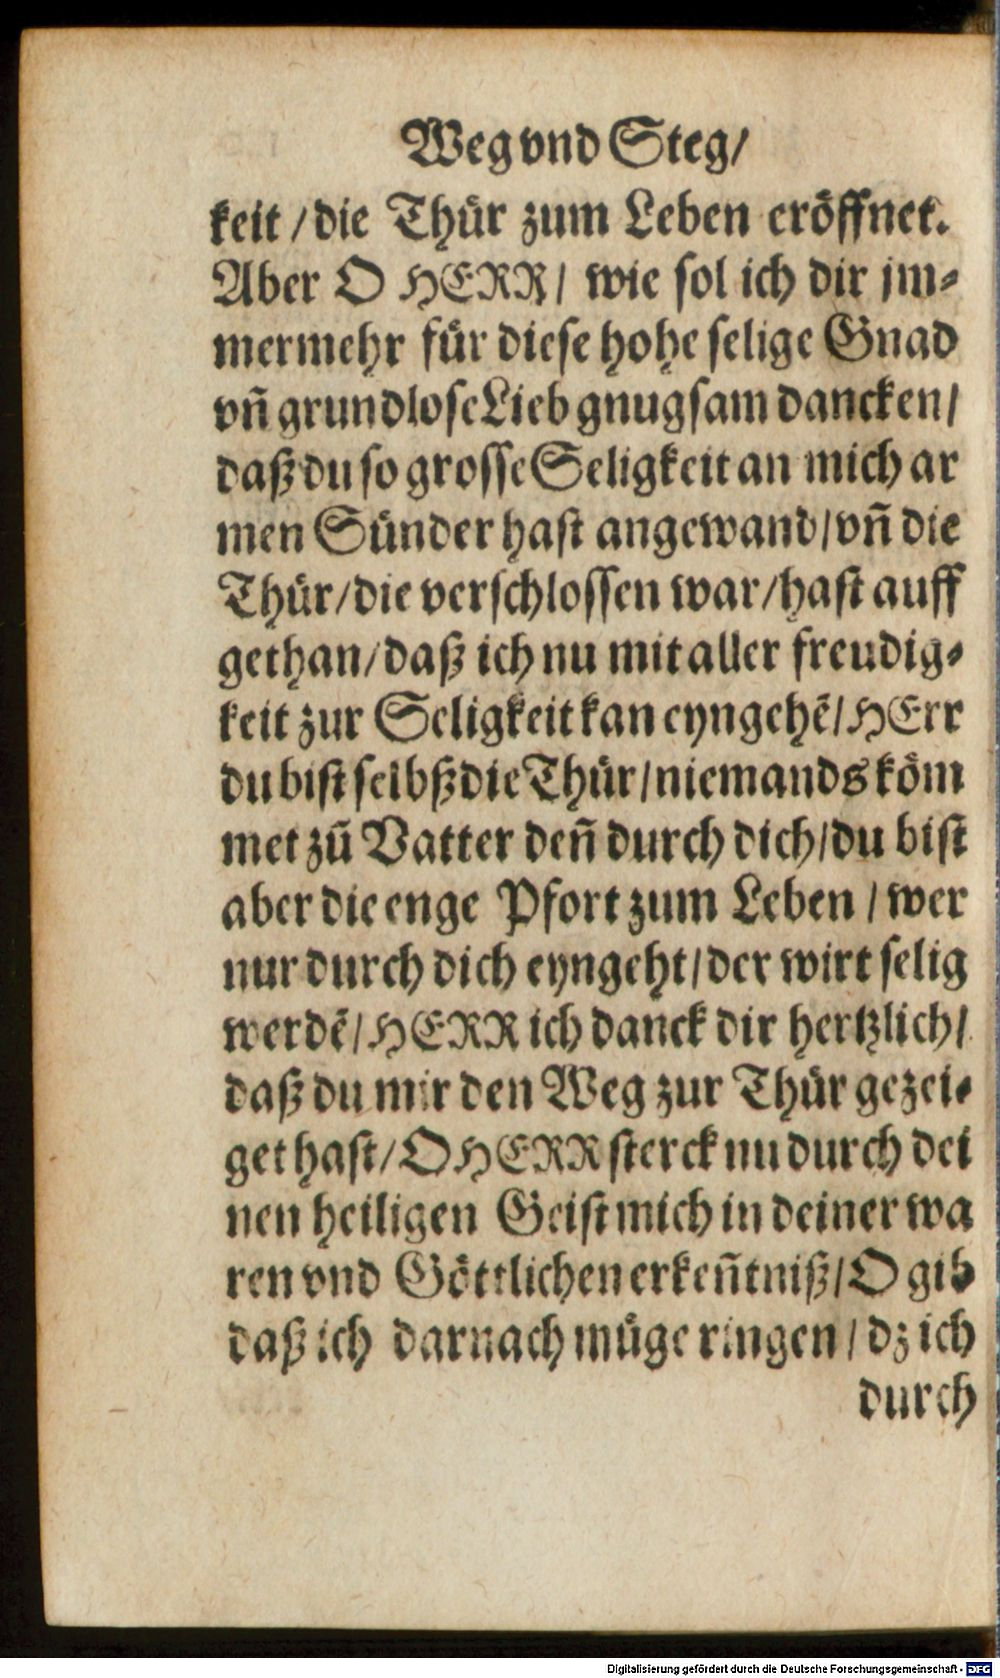 Weg vnd Steg/
keit / die Thür zum Leben eröffnet.
Aber O HERR/ wie sol ich dir jm-
mermehr für diese hohe selige Gnad
vñ grundlose Lieb gnugsam dancken/
daß du so grosse Seligkeit an mich ar
men Sünder hast angewand/ vñ die
Thür/ die verschlossen war/ hast auff
gethan/ daß ich nu mit aller freudig-
keit zur Seligkeit kan eyngehẽ/ HErr
du bist selbß die Thür/ niemands köm
met zũ Vatter deñ durch dich/ du bist
aber die enge Pfort zum Leben / wer
nur durch dich eyngeht/ der wirt selig
werdẽ/ HERR ich danck dir hertzlich/
daß du mir den Weg zur Thür gezei-
get hast/ O HERR sterck nu durch dei
nen heiligen Geist mich in deiner wa
ren vnd Göttlichen erkeñtniß/ O gib
daß ich darnach müge ringen / dz ich
durch
Digitalisierung gefördert durch die Deutsche Forschungsgemeinschaft - DFG